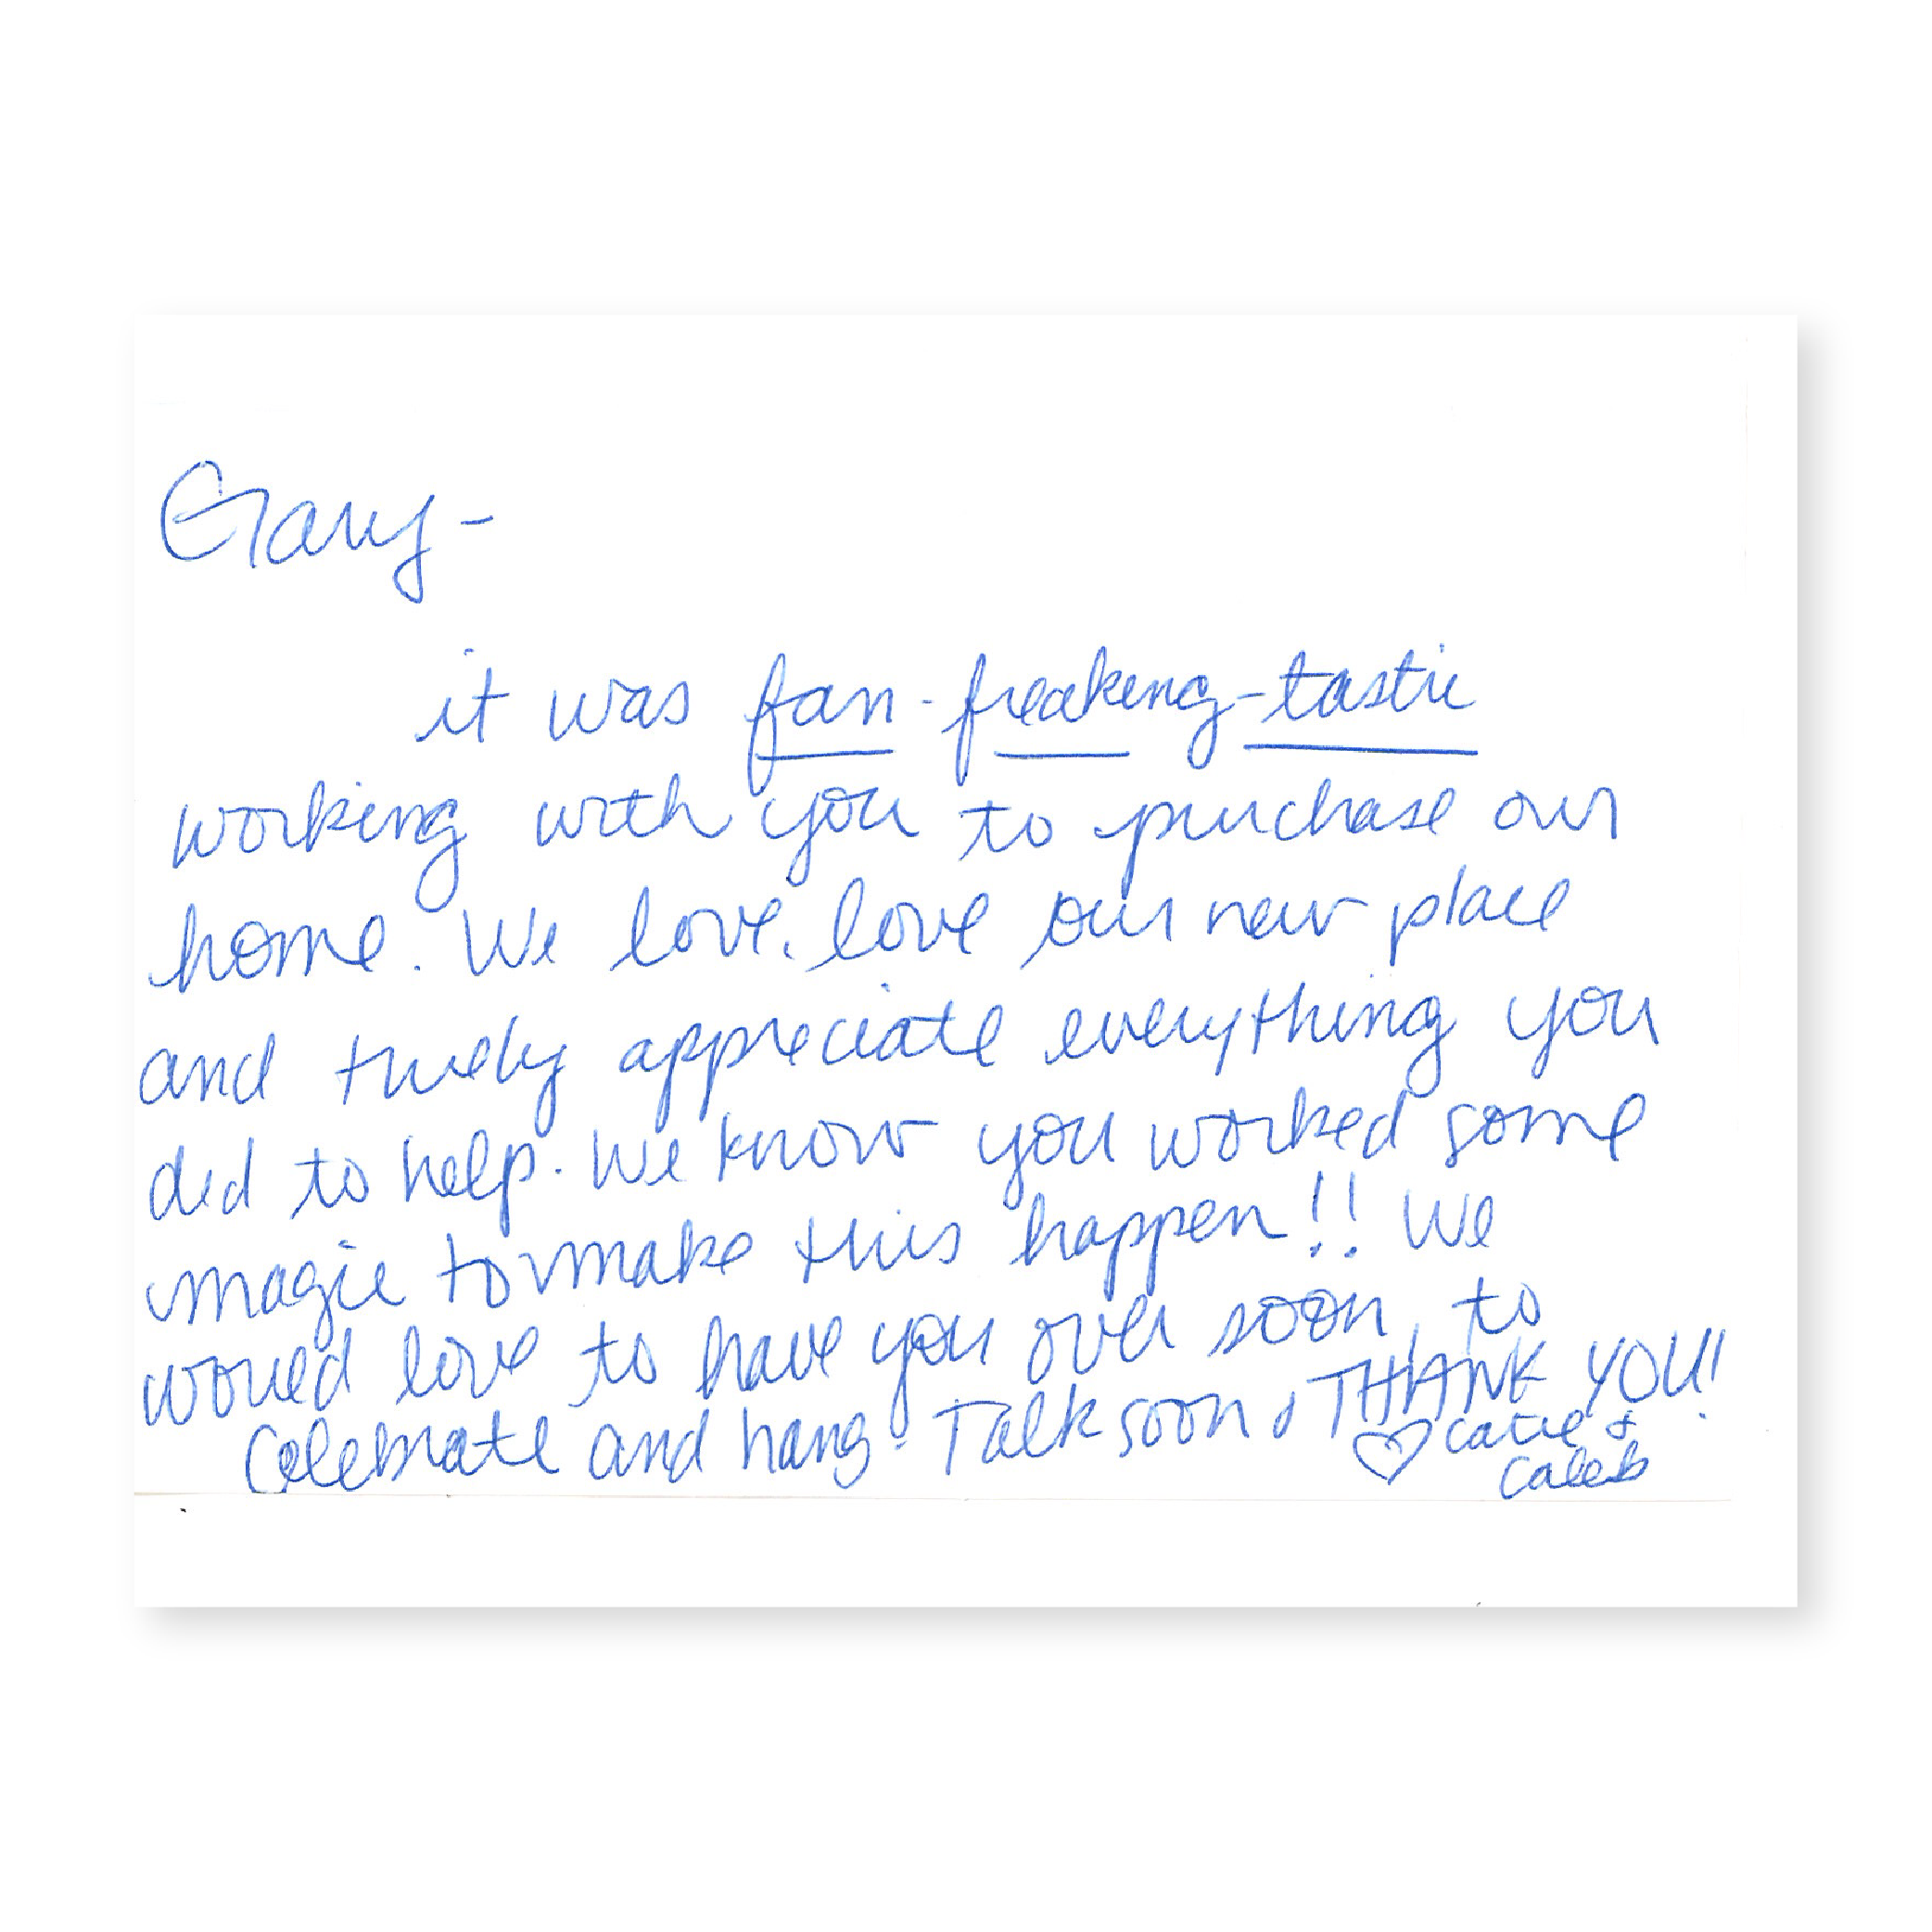 Gary-
it was fan-freaking-tastic
working with you to purchase our
home. We love, love our new place
and truely appreciate everything you
did to help. We know you worked some
magic to make this happen!! We
would love to have you over soon to
Celebrate and hang. Talk soon & THANK YOU!
♡ Catie &
Caleb